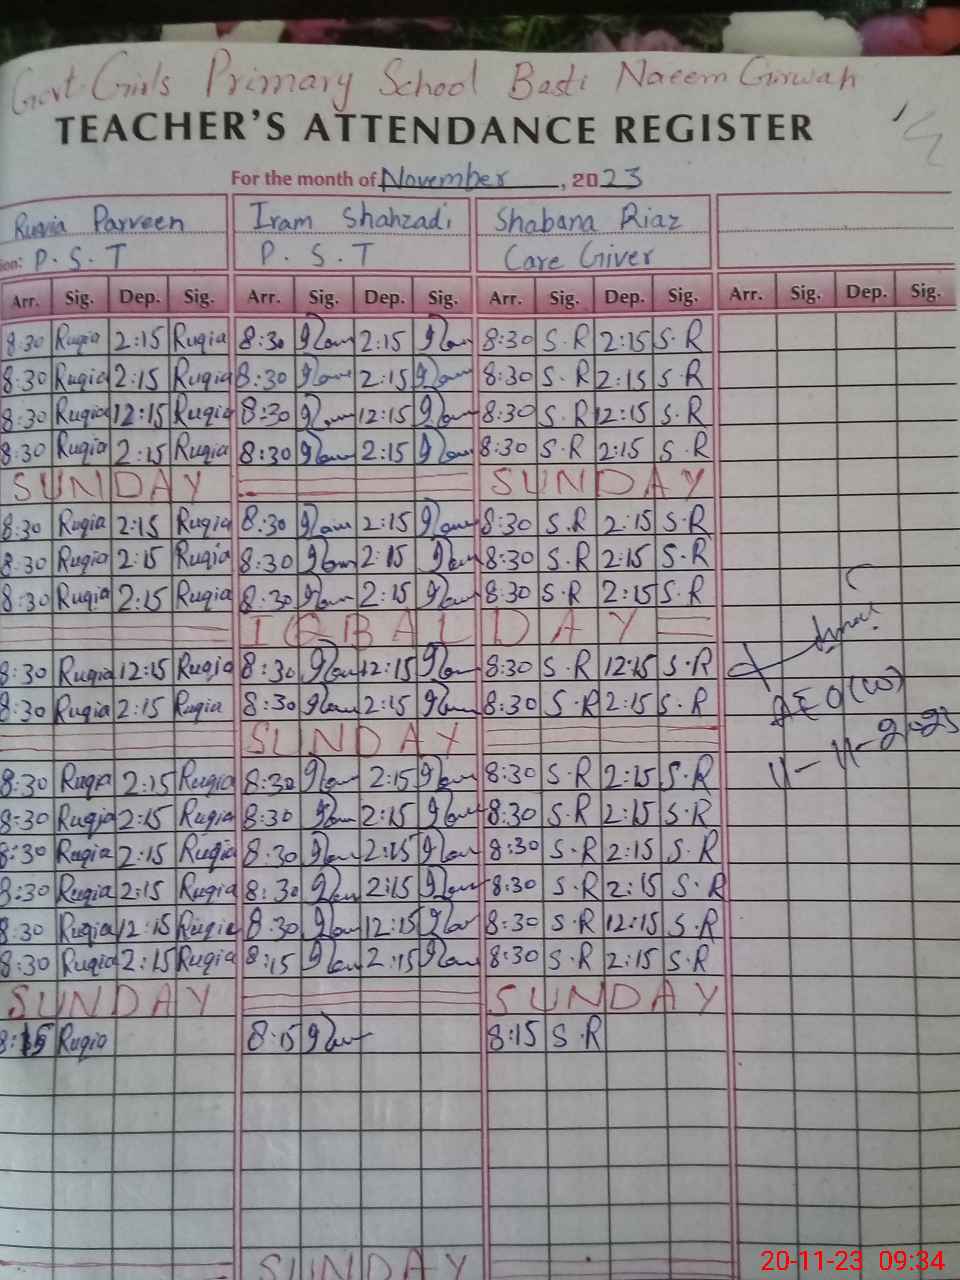 Govt. Girls Primary School Basti Naeem Girwah
TEACHER'S ATTENDANCE REGISTER
For the month of November, 2023
Ruqia Parveen Iram Shahzadi Shabana Riaz
ion: P.S.T P.S.T Care Giver
Arr. Sig. Dep. Sig. Arr. Sig. Dep. Sig. Arr. Sig. Dep. Sig. Arr. Sig. Dep. Sig.
8:30 Ruqia 2:15 Ruqia 8:30 2:15 8:30 S.R 2:15 S.R
8:30 Ruqia 2:15 Ruqia 8:30 2:15 8:30 S.R 2:15 S.R
8:30 Ruqia 12:15 Ruqia 8:30 12:15 8:30 S.R 12:15 S.R
8:30 Ruqia 2:15 Ruqia 8:30 2:15 8:30 S.R 2:15 S.R
SUNDAY SUNDAY
8:30 Ruqia 2:15 Ruqia 8:30 2:15 8:30 S.R 2:15 S.R
8:30 Ruqia 2:15 Ruqia 8:30 2:15 8:30 S.R 2:15 S.R
8:30 Ruqia 2:15 Ruqia 8:30 2:15 8:30 S.R 2:15 S.R
IQBAL DAY
8:30 Ruqia 12:15 Ruqia 8:30 12:15 8:30 S.R 12:15 S.R
8:30 Ruqia 2:15 Ruqia 8:30 2:15 8:30 S.R 2:15 S.R
AEO(W)
SUNDAY
11-11-2023
8:30 Ruqia 2:15 Ruqia 8:30 2:15 8:30 S.R 2:15 S.R
8:30 Ruqia 2:15 Ruqia 8:30 2:15 8:30 S.R 2:15 S.R
8:30 Ruqia 2:15 Ruqia 8:30 2:15 8:30 S.R 2:15 S.R
8:30 Ruqia 2:15 Ruqia 8:30 2:15 8:30 S.R 2:15 S.R
8:30 Ruqia 12:15 Ruqia 8:30 12:15 8:30 S.R 12:15 S.R
8:30 Ruqia 2:15 Ruqia 8:15 2:15 8:30 S.R 2:15 S.R
SUNDAY SUNDAY
8:15 Ruqia 8:15 8:15 S.R
SUNDAY
20-11-23 09:34